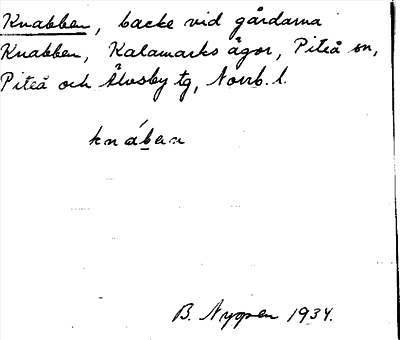 Knabben, backe vid gårdarna
Knabben, Kalamarks ägor, Piteå sn,
Piteå och Älvsby tg, Norrb. l.
knáben
B. Nygren 1934.